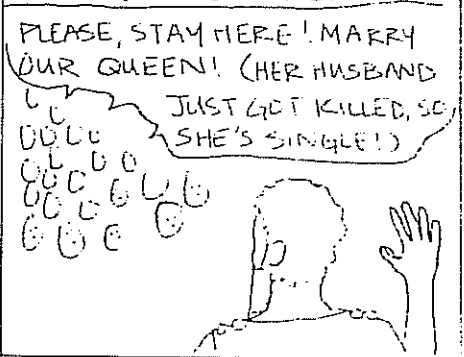 PLEASE, STAY HERE! MARRY
OUR QUEEN! (HER HUSBAND
JUST GOT KILLED, SO
SHE'S SINGLE!)